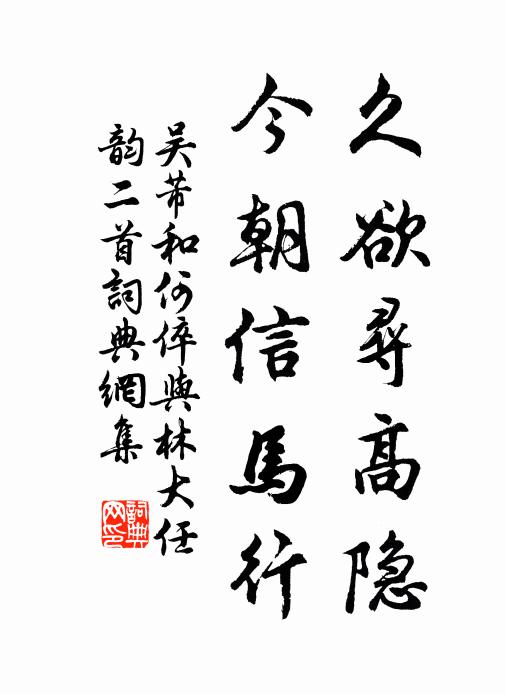 久欲尋高隐
今朝信馬行
吴芾和何倅與林大任
韵二首詞典網集
詞典
网印